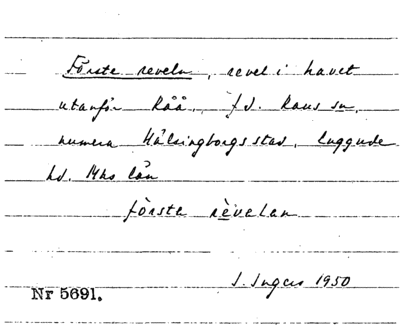 Förste reveln, revel i havet
utanför Råå, f.d. Raus sn,
numera Hälsingborgs stad, Luggude
hd. Mhs län
förste rèvelan
I. Ingers 1950
Nr 5691.